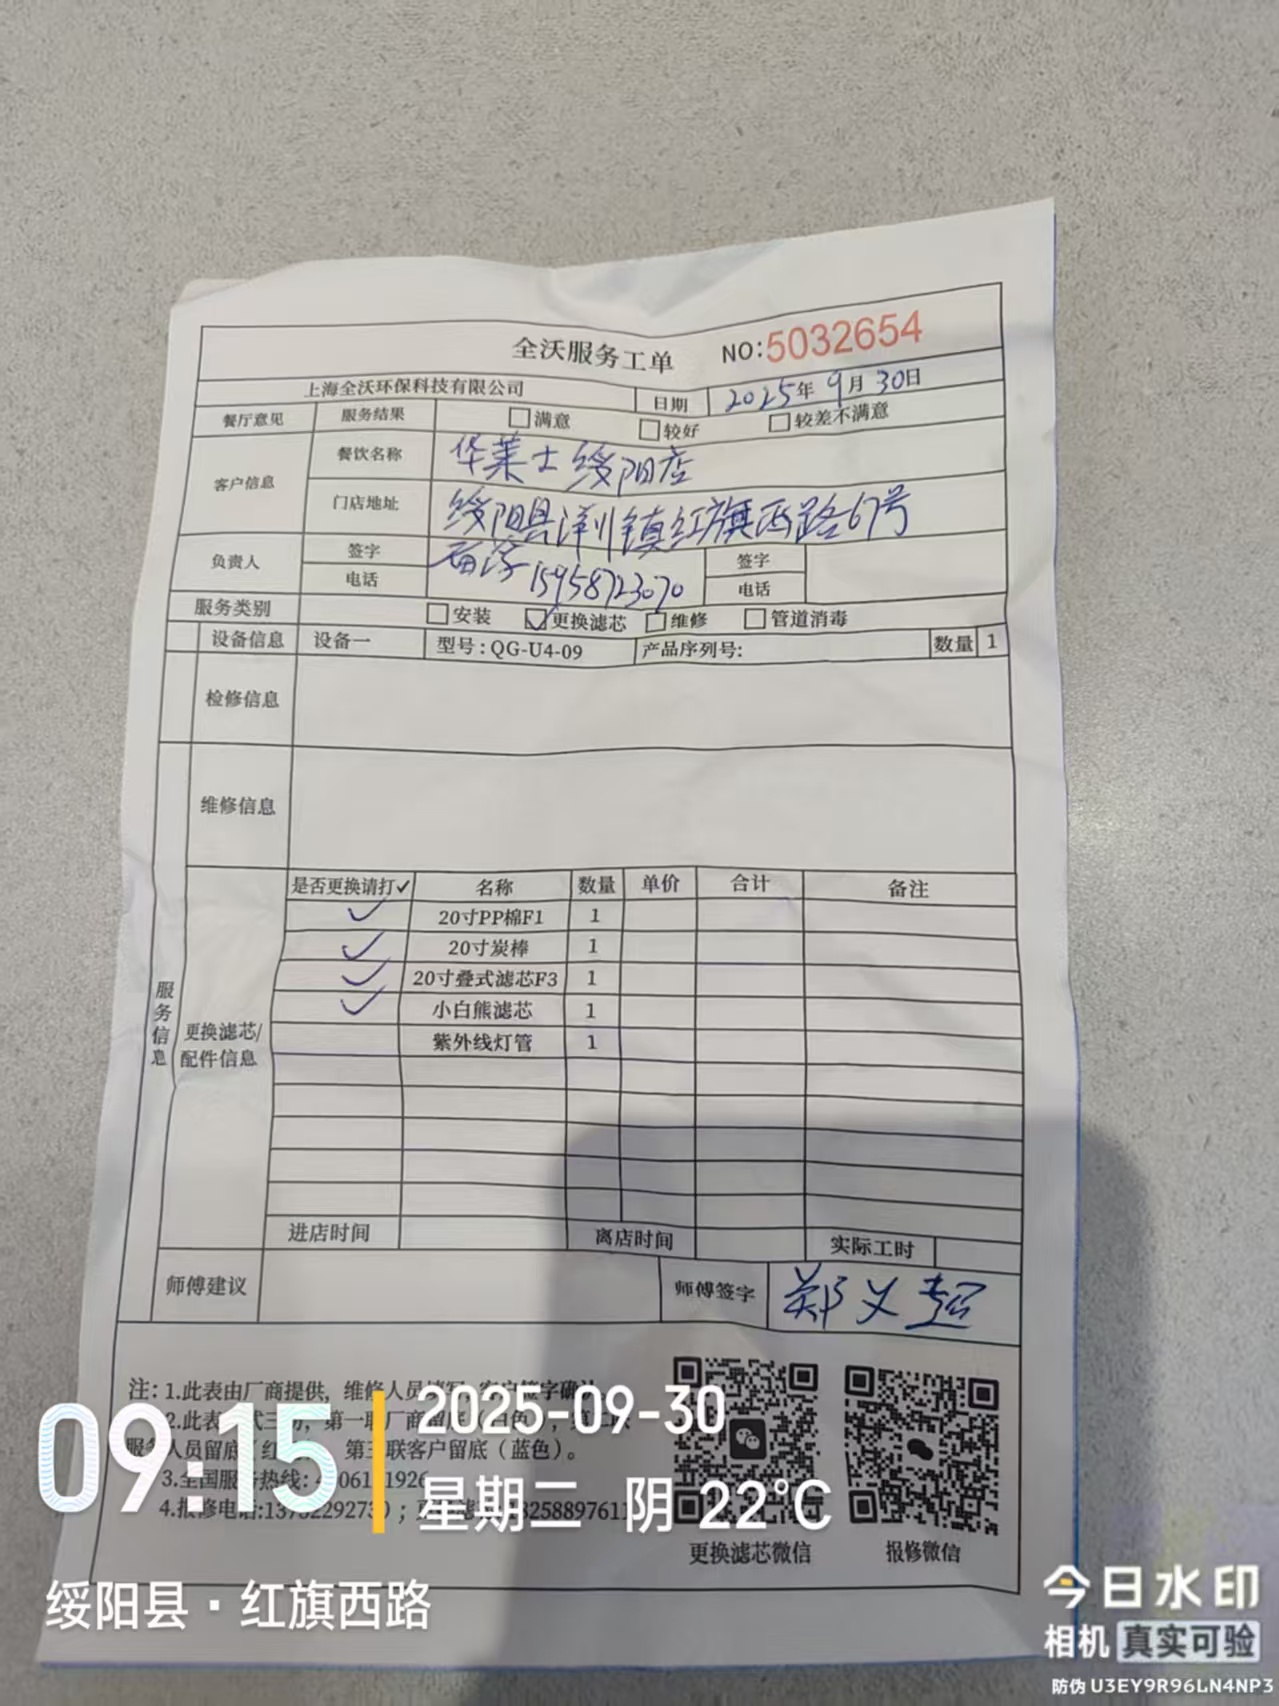 全沃服务工单 NO:5032654
上海全沃环保科技有限公司 日期 2025年9月30日
餐厅意见 服务结果 □满意 □较好 □较差不满意
客户信息 餐饮名称 华莱士绥阳店
门店地址 绥阳县洋川镇红旗西路67号
负责人 签字 签字
电话 15958723070 电话
服务类别 □安装 ☑更换滤芯 □维修 □管道消毒
设备信息 设备一 型号:QG-U4-09 产品序列号: 数量 1
检修信息
维修信息
服务信息
更换滤芯/
配件信息
是否更换请打✓ 名称 数量 单价 合计 备注
✓ 20寸PP棉F1 1
✓ 20寸炭棒 1
✓ 20寸叠式滤芯F3 1
✓ 小白熊滤芯 1
紫外线灯管 1
进店时间 离店时间 实际工时
师傅建议 师傅签字 郑义超
注: 1.此表由厂商提供, 维修人员填写, 客户签字确认
2.此表 式三 , 第一联厂商留底(白色), 第二
服务人员留底(红 第三联客户留底(蓝色)。
3.全国服务热线:
4.报修电话:
更换滤芯微信 报修微信
09:15
2025-09-30
星期二 阴 22°C
绥阳县·红旗西路
今日水印
相机 真实可验
防伪 U3EY9R96LN4NP3